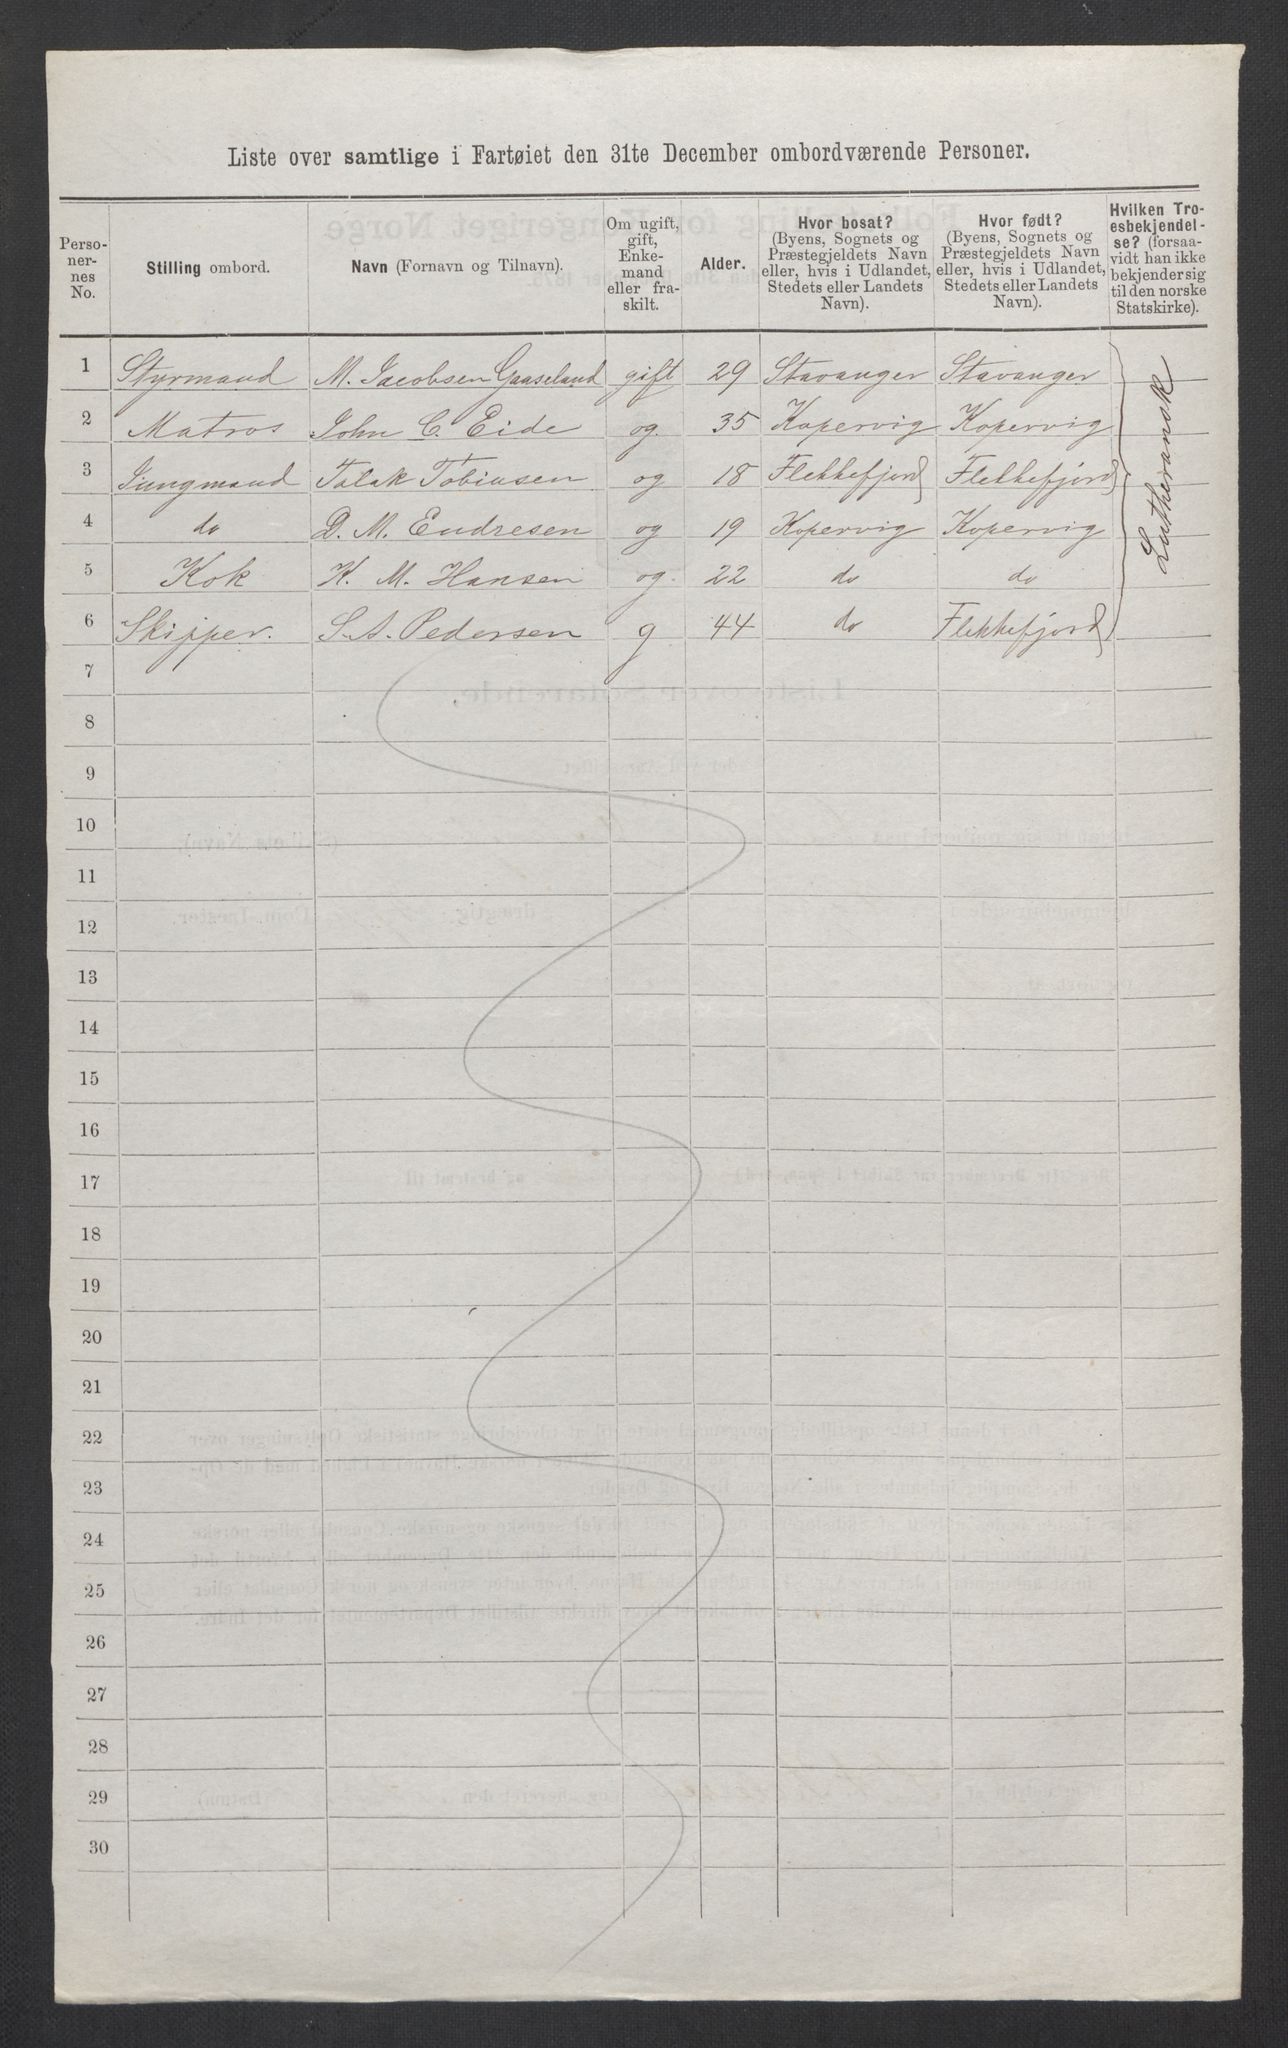 Liste over samtlige i Fartøiet den 31te December ombordværende Personer.
Perso-nernes No. | Stilling ombord. | Navn (Fornavn og Tilnavn). | Om ugift, gift, Enke-mand eller fra-skilt. | Alder. | Hvor bosat? (Byens, Sognets og Præstegjeldets Navn eller, hvis i Udlandet, Stedets eller Landets Navn). | Hvor født? (Byens, Sognets og Præstegjeldets Navn eller, hvis i Udlandet, Stedets eller Landets Navn). | Hvilken Tro-esbekjendel-se? (forsaa-vidt han ikke bekjender sig til den norske Statskirke).
1 Styrmand M. Jacobsen Gaaseland gift 29 Stavanger Stavanger
2 Matros John C. Eide og. 35 Kopervig Kopervig
3 Jungmand Talak Tobiasen og 18 Flekkefjord Flekkefjord
4 do D. M. Endresen og 19 Kopervig Kopervig
5 Kok K. M. Hansen og. 22 do do
6 Skipper. S. A. Pedersen g 44 do Flekkefjord
Lutheransk
7
8
9
10
11
12
13
14
15
16
17
18
19
20
21
22
23
24
25
26
27
28
29
30